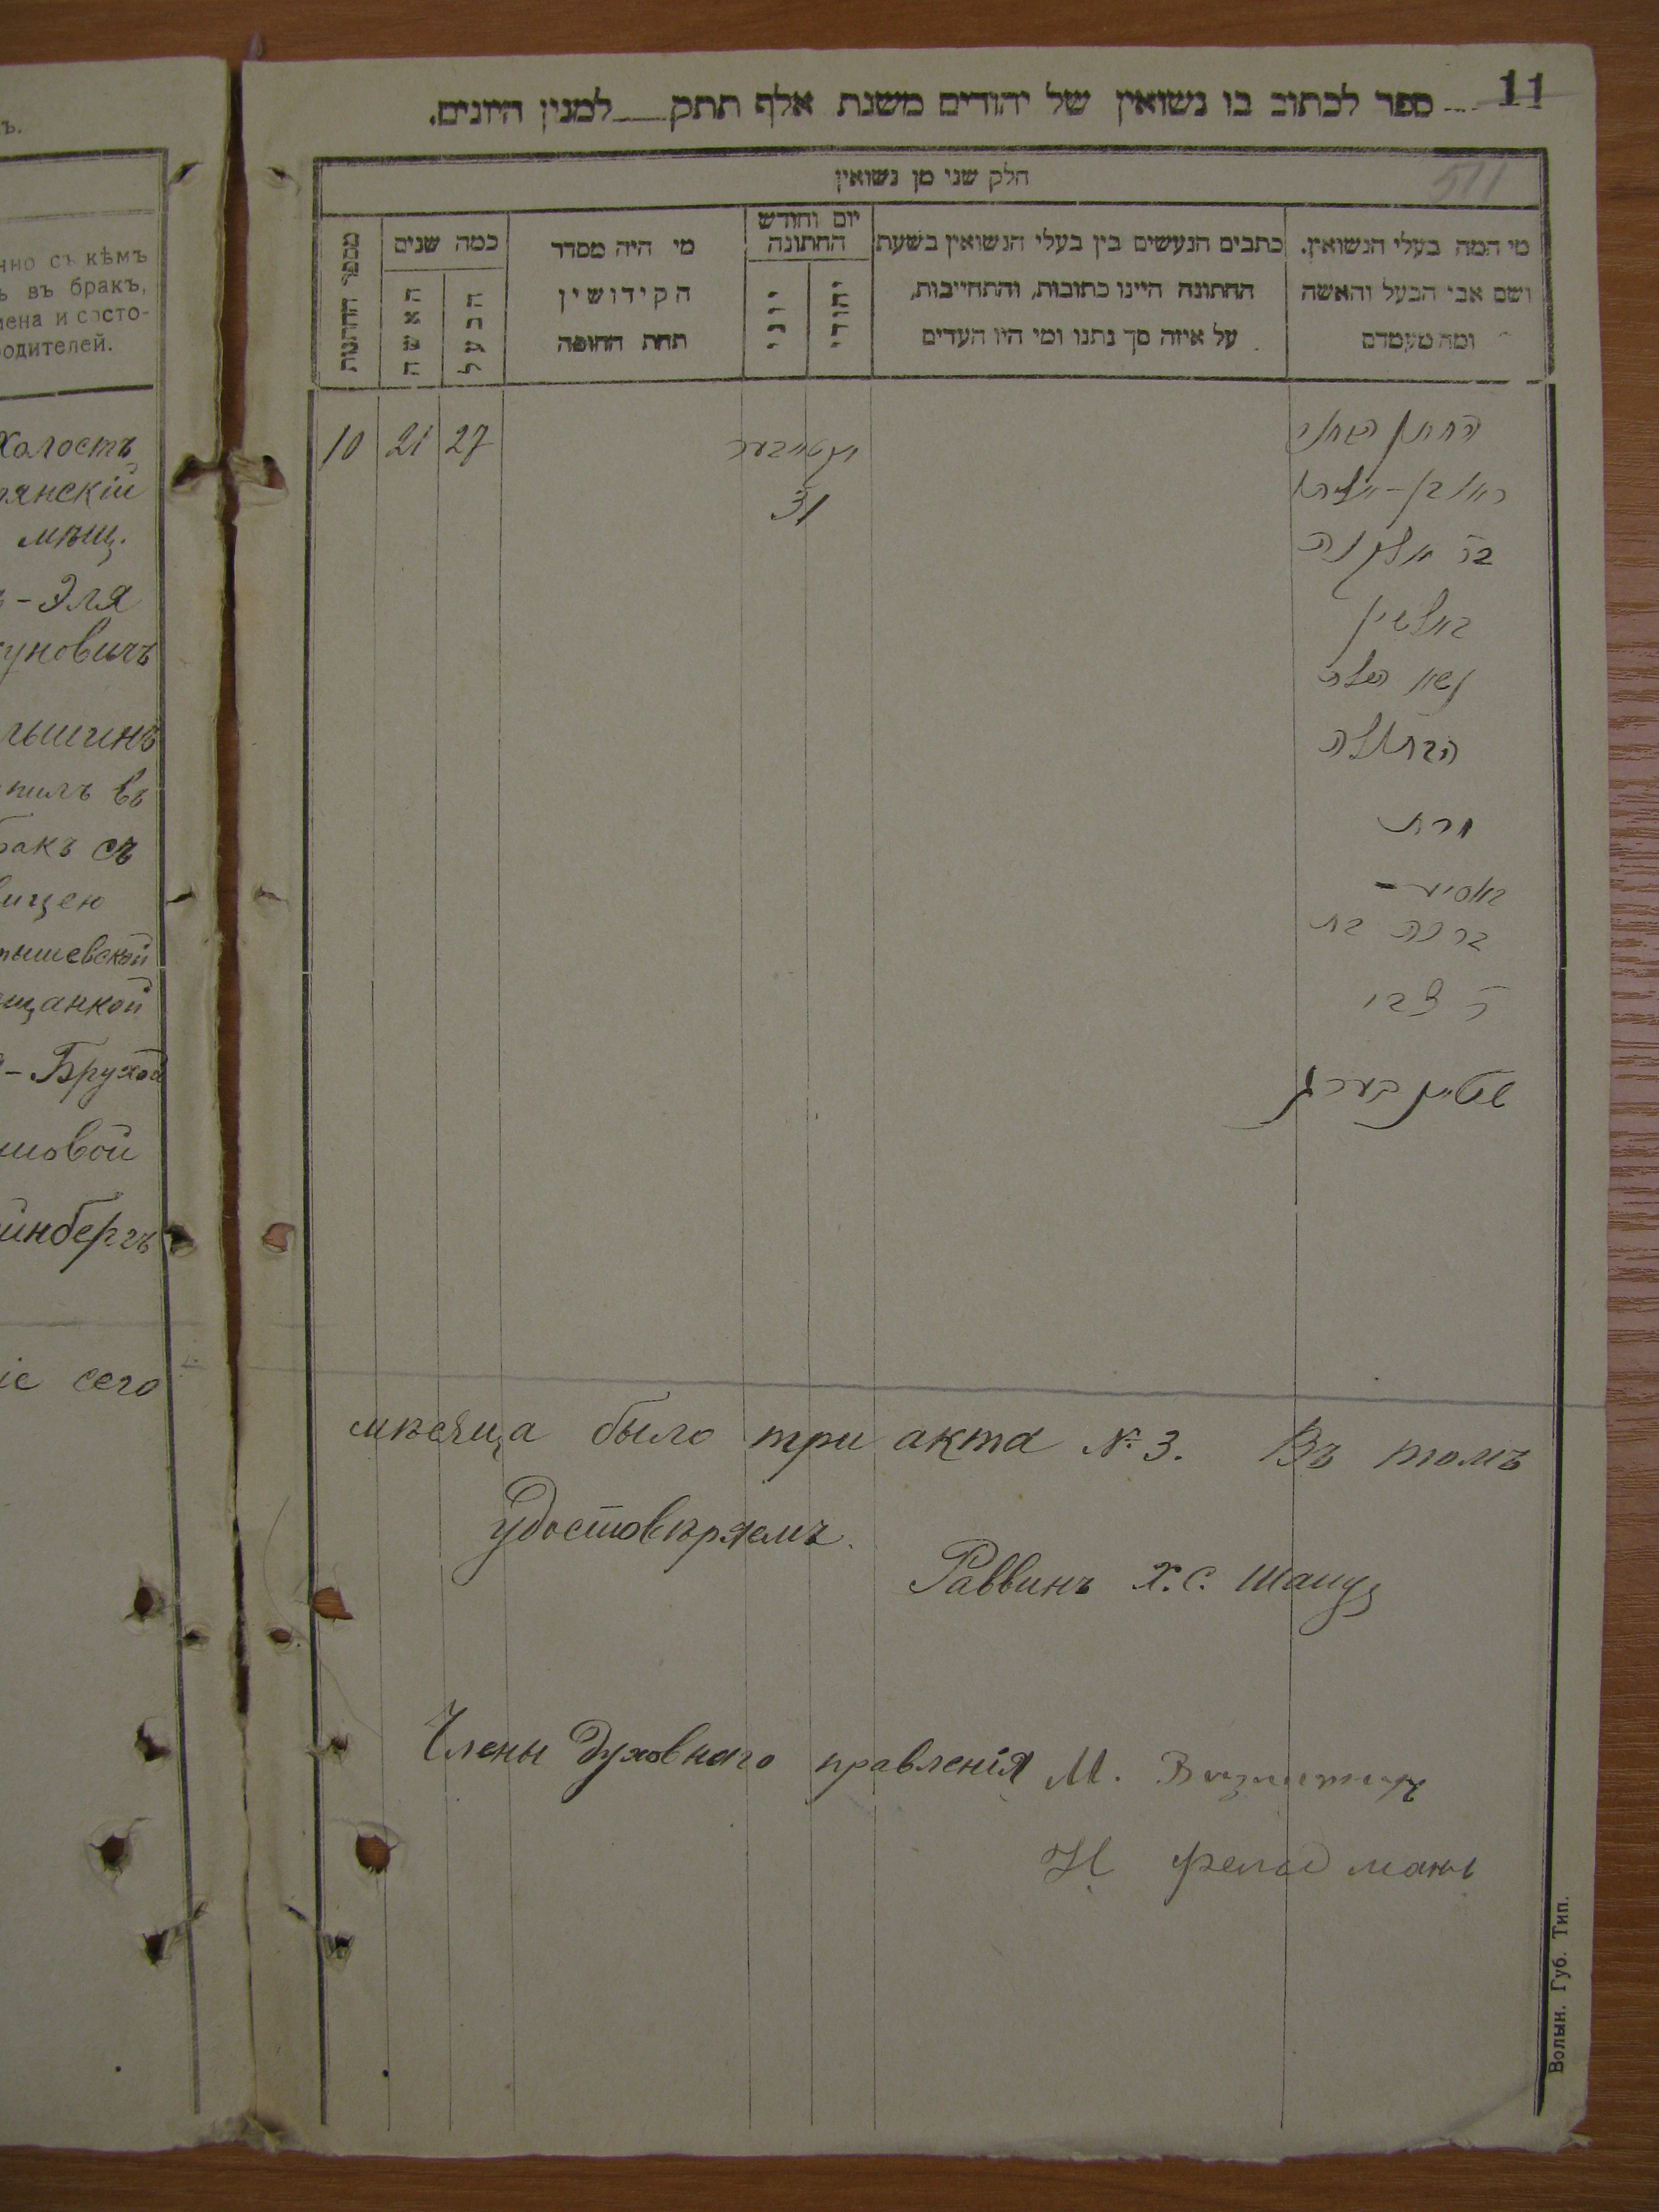 ъ.
нно съ кѣмъ
ъ въ бракъ,
мена и состо-
родителей.
холостъ
мѣщ.
-Эля
уновичъ
льшинъ
пилъ въ
бракъ съ
вицею
тышевской
щанкой
-Брухой
шовой
инбергъ
іе сего
11
ספר לכתוב בו נשואין של יהודים משנת אלף תתק למנין היונים.
511
חלק שני מן נשואין
מי המה בעלי הנשואין.
ושם אבי הבעל והאשה
ומה מעמדם
כתבים הנעשים בין בעלי הנשואין בשעת
החתונה היינו כתובות, והתחייבות,
על איזה סך נתנו ומי היו העדים
יום וחודש
החתונה
יהודי
יוני
מי היה מסדר
הקידושין
תחת החופה
כמה שנים
הבעל
האשה
מספר החתונות
10 21 27
31
החתן
בר אלקנה
באלשין
נשא
הבתולה
מרת
באסיע-
ברכה בת
ר צבי
שטיינבערג
мѣсяца было три акта № 3. Въ томъ
удостовѣряемъ.
Раввинъ Х. С. Шапуз
Члены Духовнаго правленія М.
И Фельдманъ
Волын. Губ. Тип.